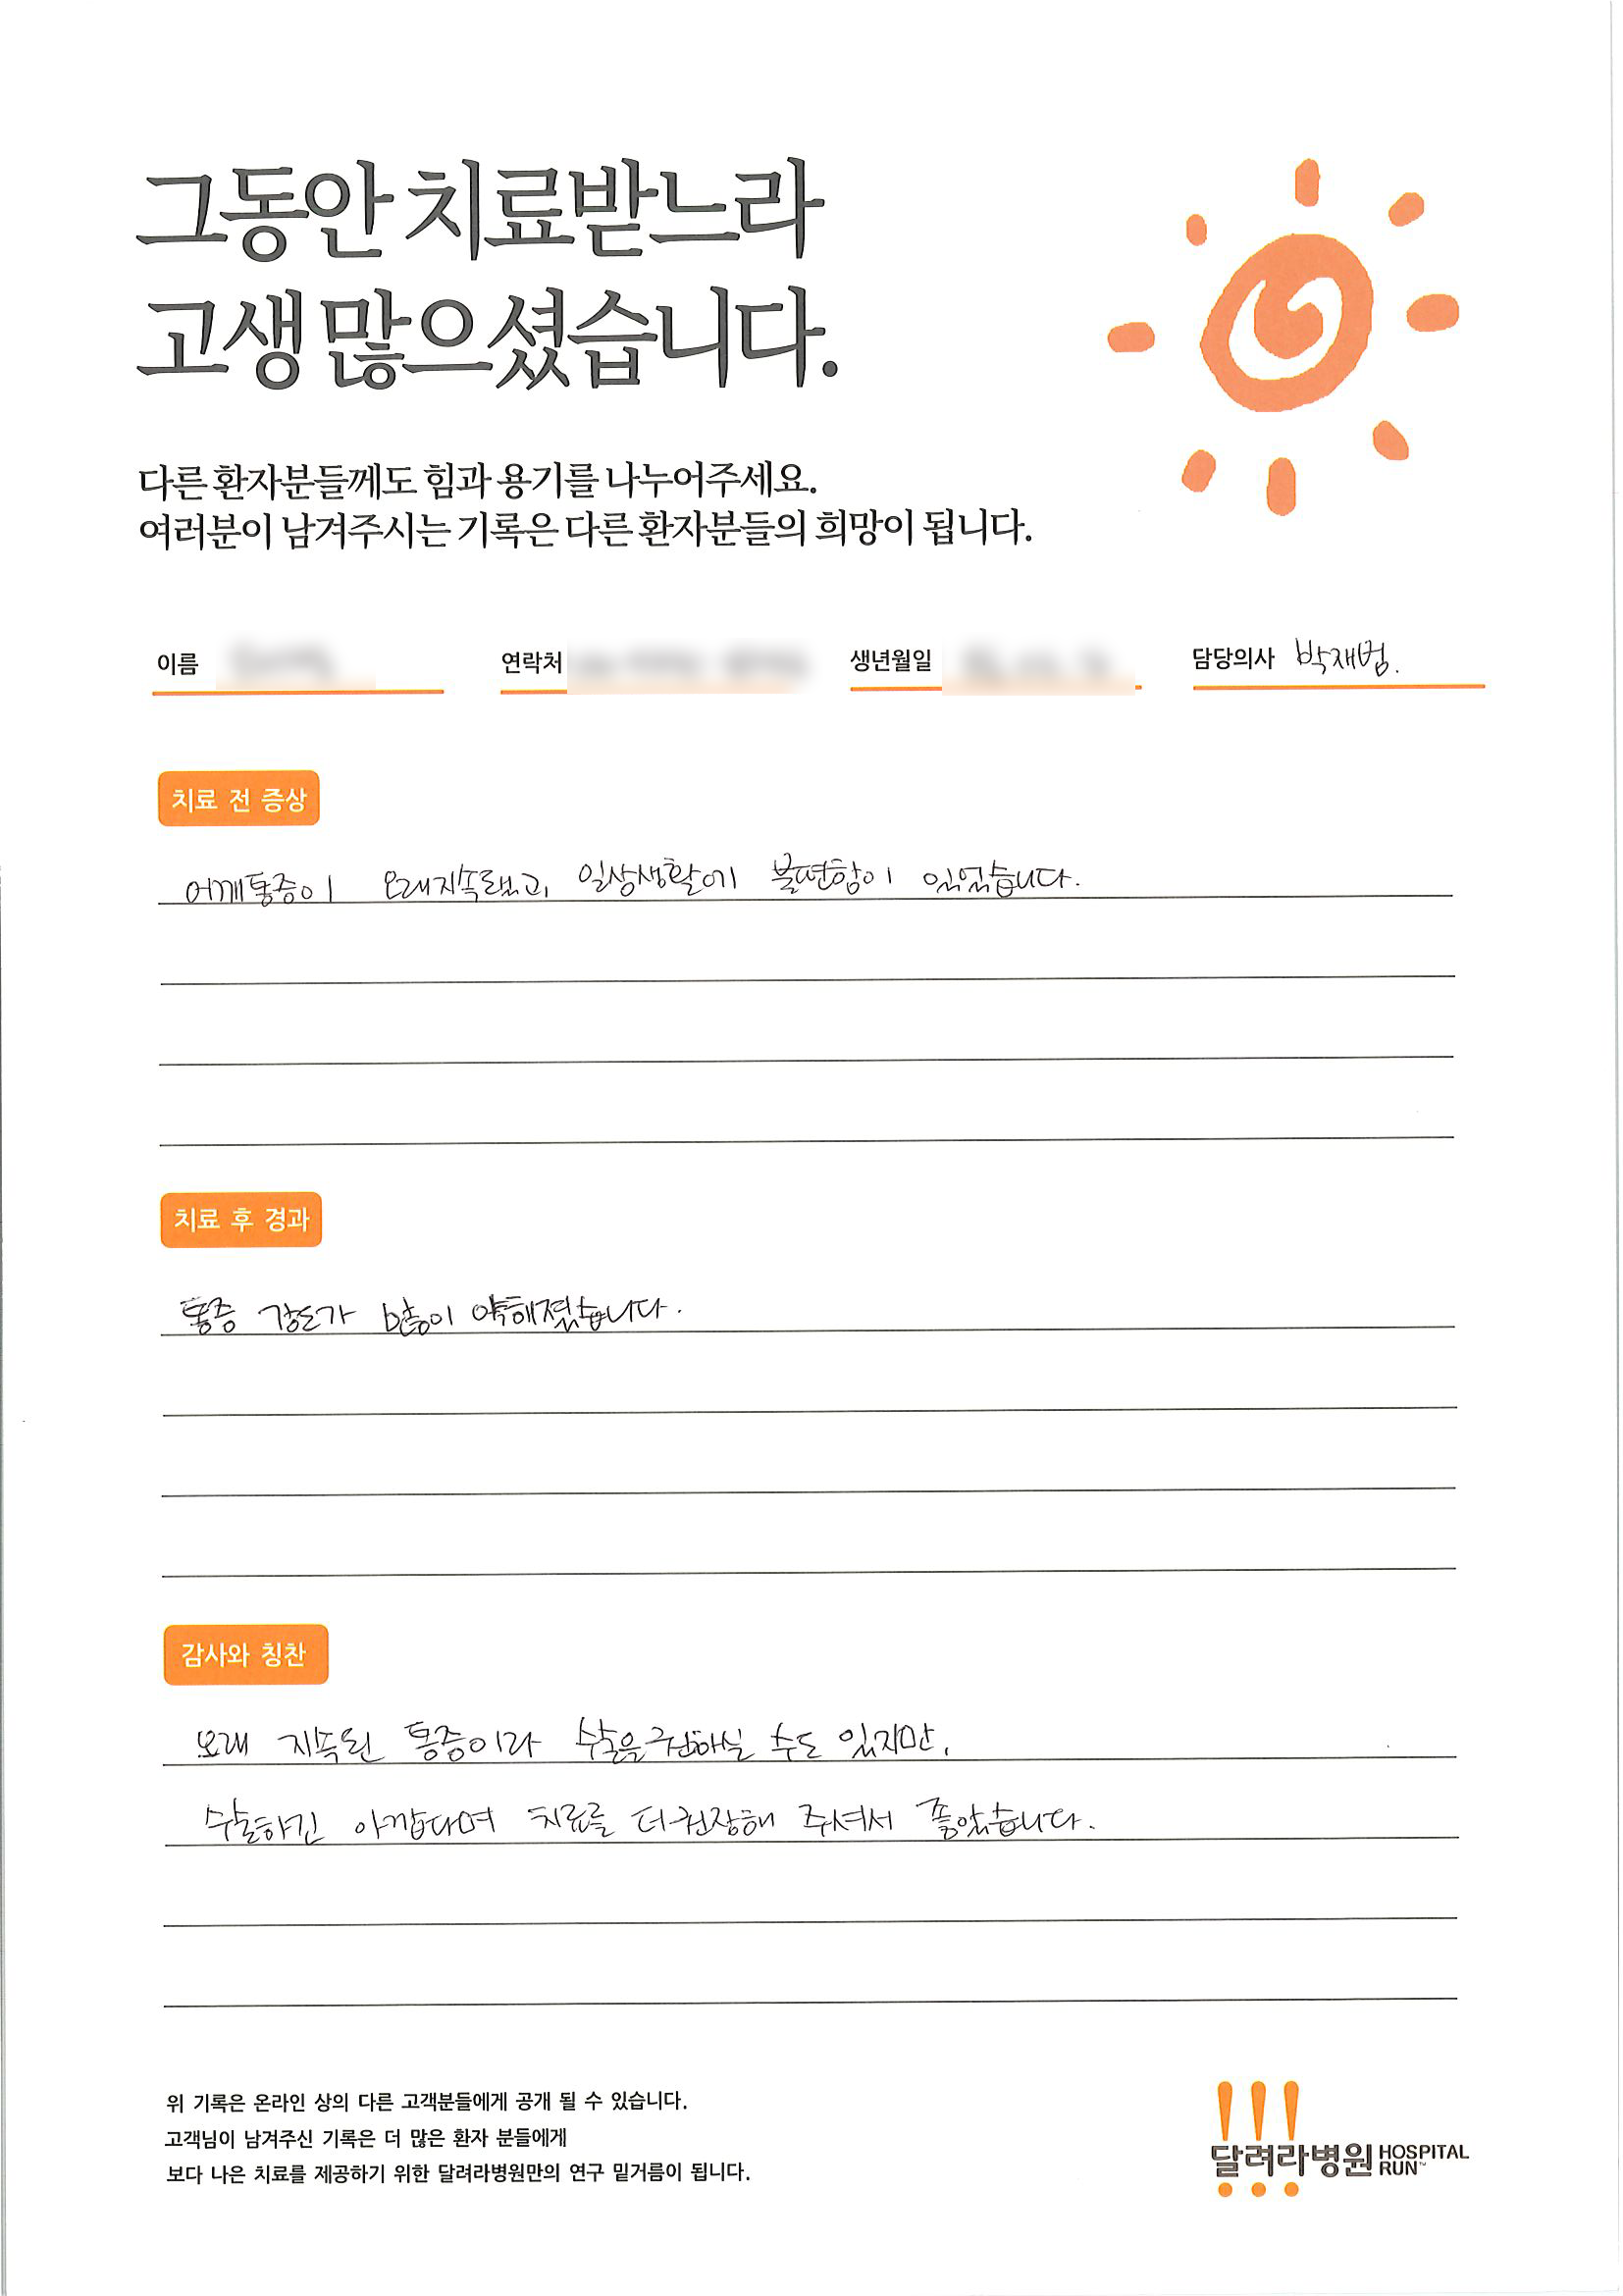 그동안 치료받느라
고생 많으셨습니다.
다른 환자분들께도 힘과 용기를 나누어주세요.
여러분이 남겨주시는 기록은 다른 환자분들의 희망이 됩니다.
이름 연락처 생년월일 담당의사 박재범.
치료 전 증상
어깨통증이 오래지속됐고, 일상생활에 불편함이 있었습니다.
치료 후 경과
통증 강도가 많이 약해졌습니다.
감사와 칭찬
오래 지속된 통증이라 수술을 권하실 수도 있지만,
수술하긴 아깝다며 치료를 더 권장해 주셔서 좋았습니다.
위 기록은 온라인 상의 다른 고객분들에게 공개 될 수 있습니다.
고객님이 남겨주신 기록은 더 많은 환자 분들에게
보다 나은 치료를 제공하기 위한 달려라병원만의 연구 밑거름이 됩니다.
!!!
달려라병원 HOSPITAL
RUN™